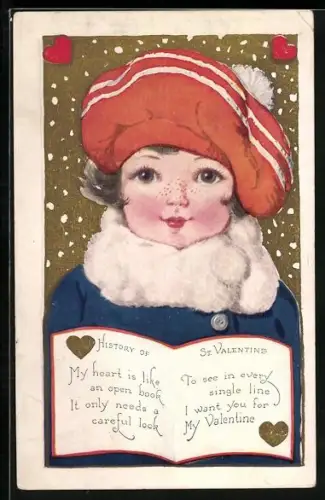 History of
My heart is like
an open book
It only needs a
careful look
St Valentine
To see in every
single line
I want you for
My Valentine